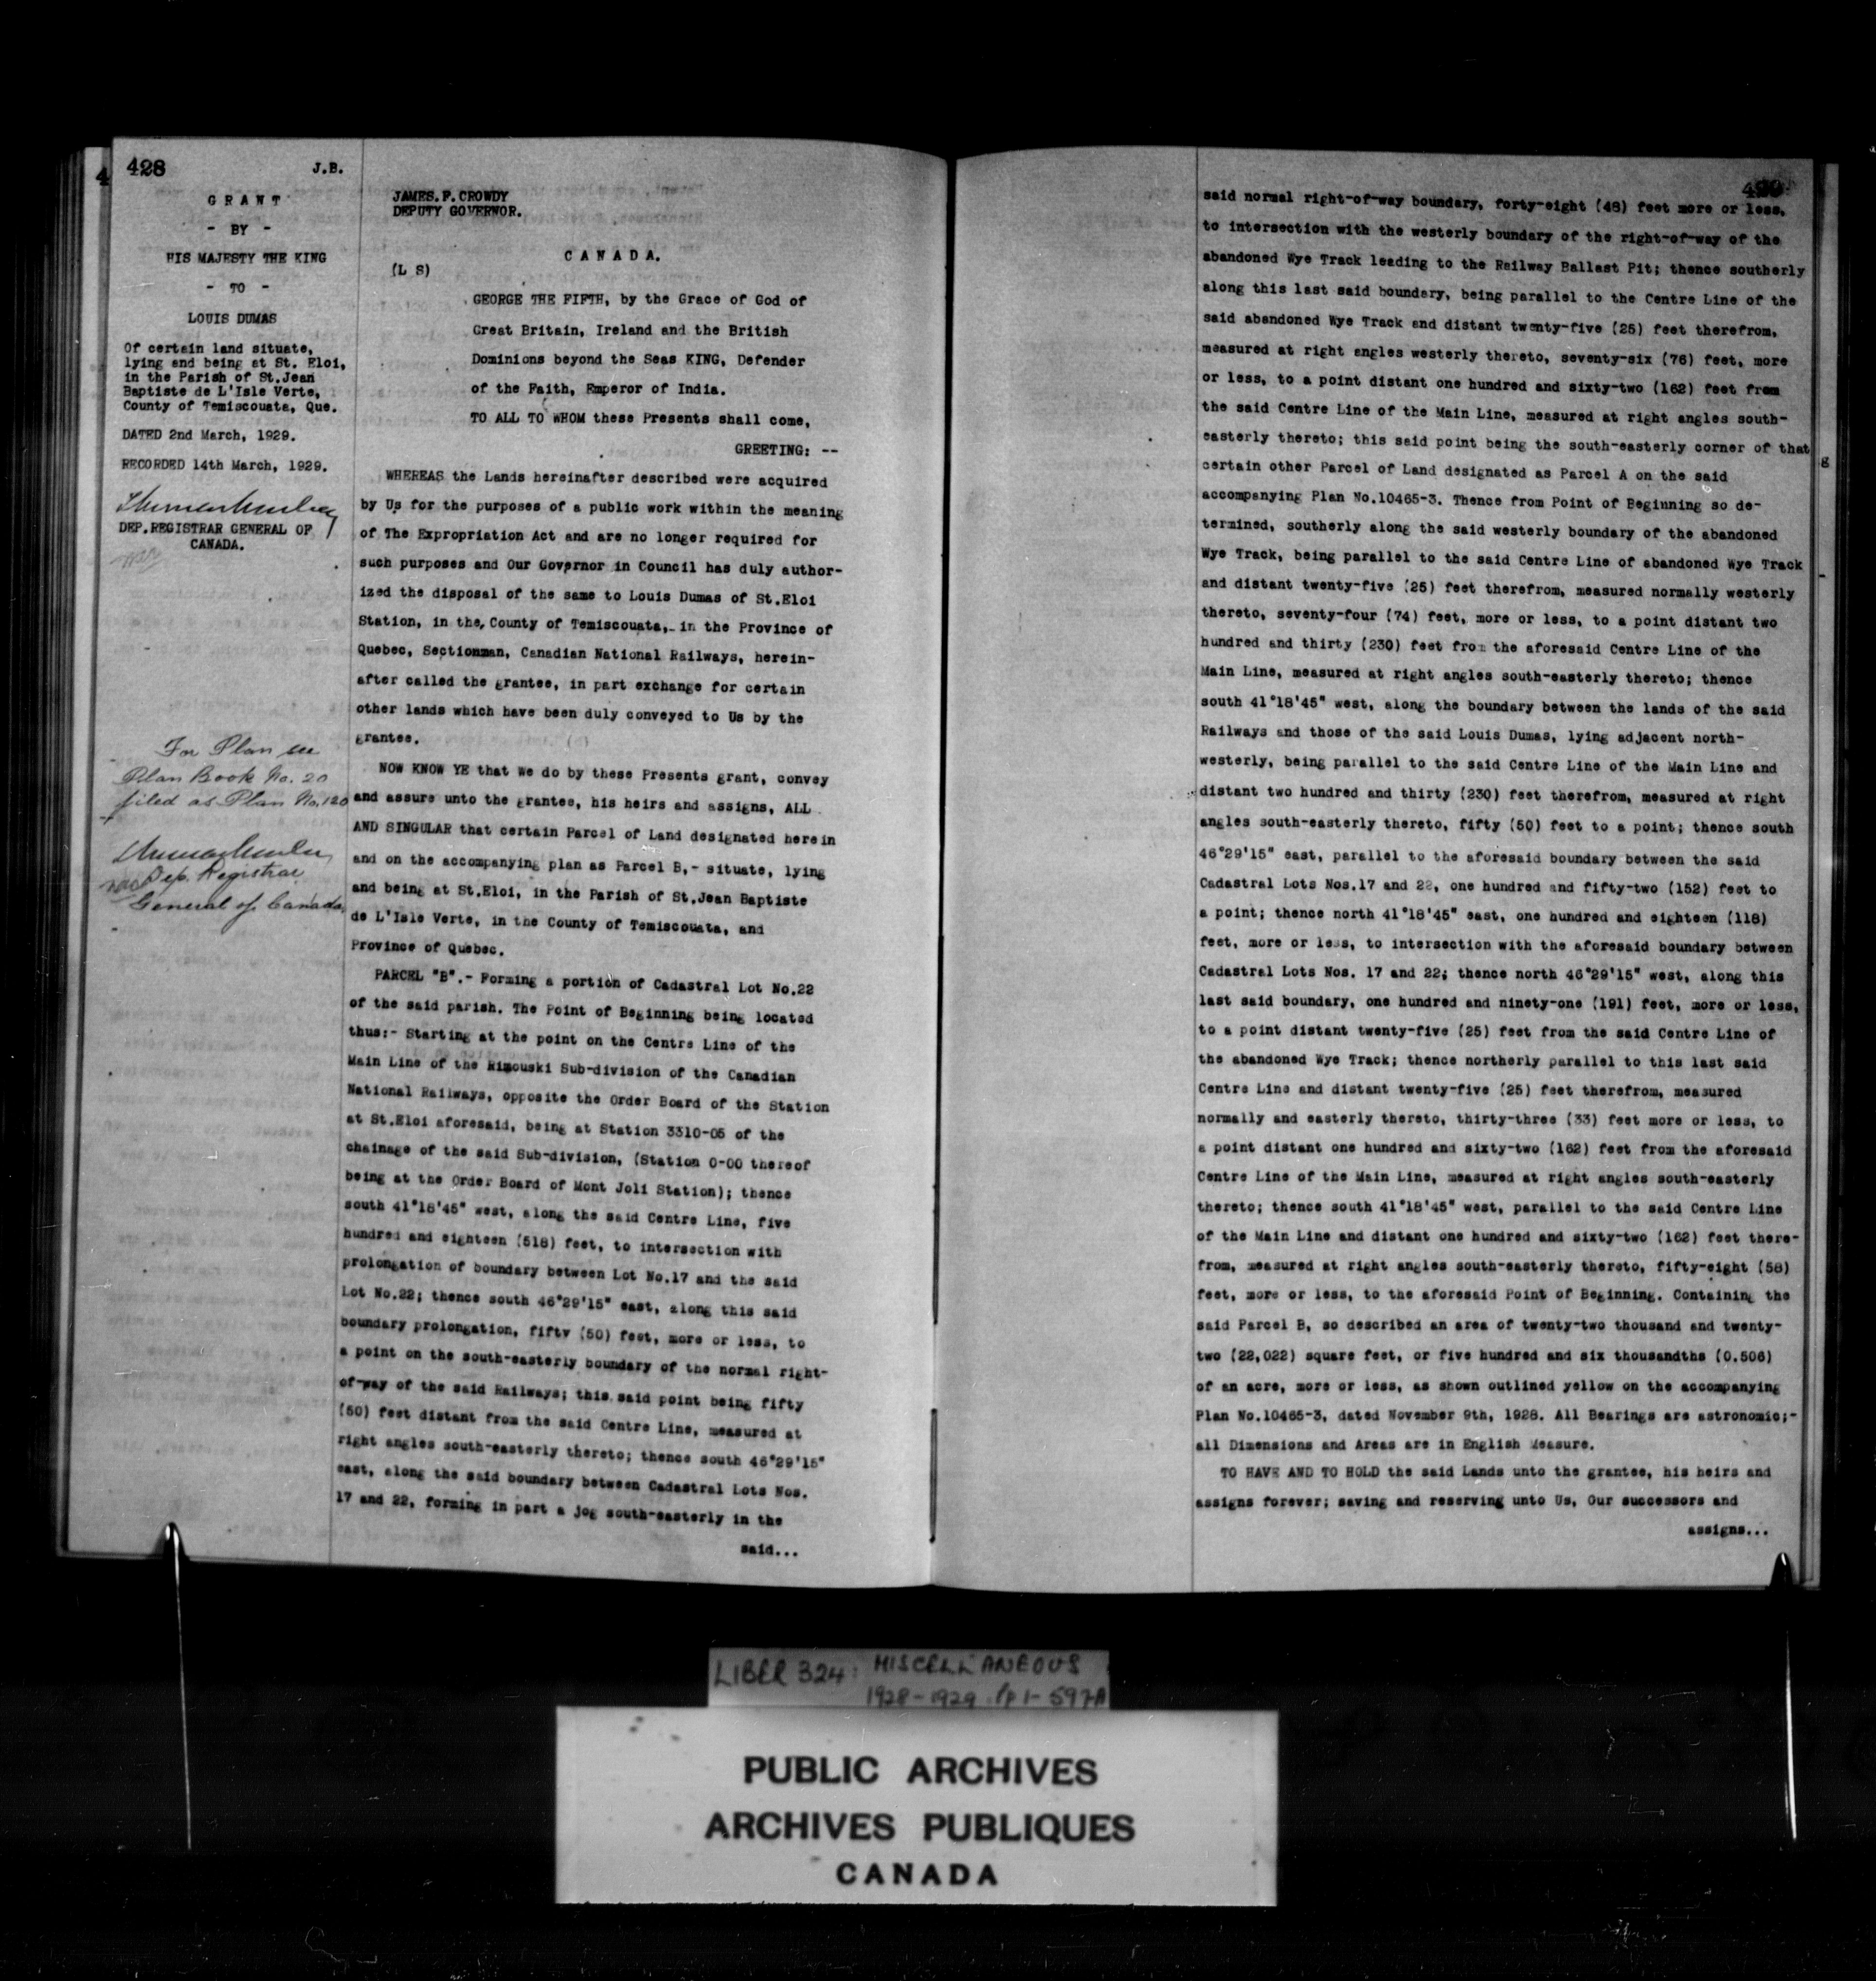 428
J.B.
GRANT
- BY -
HIS MAJESTY THE KING
- TO -
LOUIS DUMAS
Of certain land situate,
lying and being at St. Eloi,
in the Parish of St.Jean
Baptiste de L'Isle Verte,
County of Temiscouata, Que.
DATED 2nd March, 1929.
RECORDED 14th March, 1929.
DEP.REGISTRAR GENERAL OF
CANADA.
For Plan see
Plan Book No. 20
filed as Plan No. 120
Dep. Registrar
General of Canada
JAMES.F.CROWDY
DEPUTY GOVERNOR.
CANADA.
(L S)
GEORGE THE FIFTH, by the Grace of God of
Great Britain, Ireland and the British
Dominions beyond the Seas KING, Defender
of the Faith, Emperor of India.
TO ALL TO WHOM these Presents shall come,
GREETING: --
WHEREAS the Lands hereinafter described were acquired
by Us for the purposes of a public work within the meaning
of The Expropriation Act and are no longer required for
such purposes and Our Governor in Council has duly author-
ized the disposal of the same to Louis Dumas of St.Eloi
Station, in the, County of Temiscouata,- in the Province of
Quebec, Sectionman, Canadian National Railways, herein-
after called the grantee, in part exchange for certain
other lands which have been duly conveyed to Us by the
grantee.
NOW KNOW YE that We do by these Presents grant, convey
and assure unto the grantee, his heirs and assigns, ALL
AND SINGULAR that certain Parcel of Land designated herein
and on the accompanying plan as Parcel B,- situate, lying
and being at St.Eloi, in the Parish of St.Jean Baptiste
de L'Isle Verte, in the County of Temiscouata, and
Province of Quebec.
PARCEL "B".- Forming a portion of Cadastral Lot No.22
of the said parish. The Point of Beginning being located
thus:- Starting at the point on the Centre Line of the
Main Line of the Rimouski Sub-division of the Canadian
National Railways, opposite the Order Board of the Station
at St.Eloi aforesaid, being at Station 3310-05 of the
chainage of the said Sub-division, (Station 0-00 thereof
being at the Order Board of Mont Joli Station); thence
south 41°18'45" west, along the said Centre Line, five
hundred and eighteen (518) feet, to intersection with
prolongation of boundary between Lot No.17 and the said
Lot No.22; thence south 46°29'15" east, along this said
boundary prolongation, fifty (50) feet, more or less, to
a point on the south-easterly boundary of the normal right-
of-way of the said Railways; this said point being fifty
(50) feet distant from the said Centre Line, measured at
right angles south-easterly thereto; thence south 46°29'15"
east, along the said boundary between Cadastral Lots Nos.
17 and 22, forming in part a jog south-easterly in the
said...
said normal right-of-way boundary, forty-eight (48) feet more or less,
to intersection with the westerly boundary of the right-of-way of the
abandoned Wye Track leading to the Railway Ballast Pit; thence southerly
along this last said boundary, being parallel to the Centre Line of the
said abandoned Wye Track and distant twenty-five (25) feet therefrom,
measured at right angles westerly thereto, seventy-six (76) feet, more
or less, to a point distant one hundred and sixty-two (162) feet from
the said Centre Line of the Main Line, measured at right angles south-
easterly thereto; this said point being the south-easterly corner of that
certain other Parcel of Land designated as Parcel A on the said
accompanying Plan No.10465-3. Thence from Point of Beginning so de-
termined, southerly along the said westerly boundary of the abandoned
Wye Track, being parallel to the said Centre Line of abandoned Wye Track
and distant twenty-five (25) feet therefrom, measured normally westerly
thereto, seventy-four (74) feet, more or less, to a point distant two
hundred and thirty (230) feet from the aforesaid Centre Line of the
Main Line, measured at right angles south-easterly thereto; thence
south 41°18'45" west, along the boundary between the lands of the said
Railways and those of the said Louis Dumas, lying adjacent north-
westerly, being parallel to the said Centre Line of the Main Line and
distant two hundred and thirty (230) feet therefrom, measured at right
angles south-easterly thereto, fifty (50) feet to a point; thence south
46°29'15" east, parallel to the aforesaid boundary between the said
Cadastral Lots Nos.17 and 22, one hundred and fifty-two (152) feet to
a point; thence north 41°18'45" east, one hundred and eighteen (118)
feet, more or less, to intersection with the aforesaid boundary between
Cadastral Lots Nos. 17 and 22; thence north 46°29'15" west, along this
last said boundary, one hundred and ninety-one (191) feet, more or less,
to a point distant twenty-five (25) feet from the said Centre Line of
the abandoned Wye Track; thence northerly parallel to this last said
Centre Line and distant twenty-five (25) feet therefrom, measured
normally and easterly thereto, thirty-three (33) feet more or less, to
a point distant one hundred and sixty-two (162) feet from the aforesaid
Centre Line of the Main Line, measured at right angles south-easterly
thereto; thence south 41°18'45" west, parallel to the said Centre Line
of the Main Line and distant one hundred and sixty-two (162) feet there-
from, measured at right angles south-easterly thereto, fifty-eight (58)
feet, more or less, to the aforesaid Point of Beginning. Containing the
said Parcel B, so described an area of twenty-two thousand and twenty-
two (22,022) square feet, or five hundred and six thousandths (0.506)
of an acre, more or less, as shown outlined yellow on the accompanying
Plan No.10465-3, dated November 9th, 1928. All Bearings are astronomic;-
all Dimensions and Areas are in English Measure.
TO HAVE AND TO HOLD the said Lands unto the grantee, his heirs and
assigns forever; saving and reserving unto Us, Our successors and
assigns...
LIBER 324: MISCELLANEOUS
1928-1929 Pp 1-597A
PUBLIC ARCHIVES
ARCHIVES PUBLIQUES
CANADA